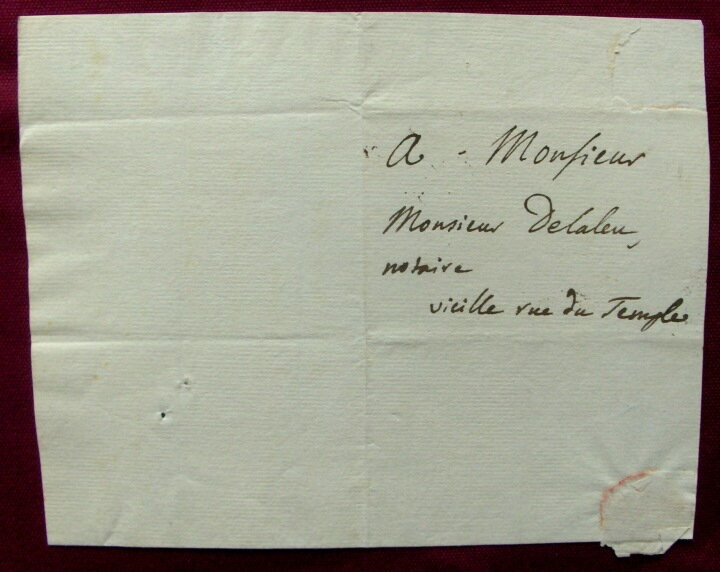 A - Monsieur
Monsieur Delaleu,
notaire
vieille rue du Temple